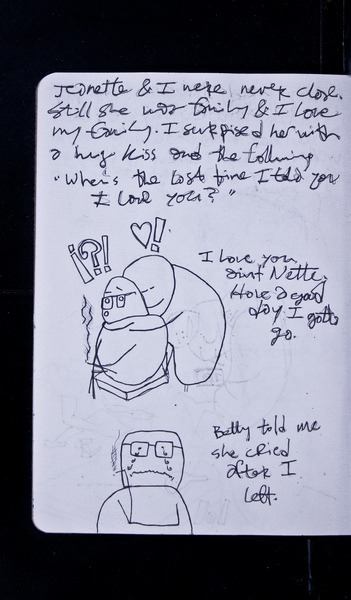 Jeanette & I were never close.
Still she was family & I love
my family. I surprised her with
a hug kiss and the following
"When's the last time I told you
I love you?"
¡?!
♡!
I love you
aint Nette.
Have a good
day I gotta
go.
Betty told me
she cried
after I
left.